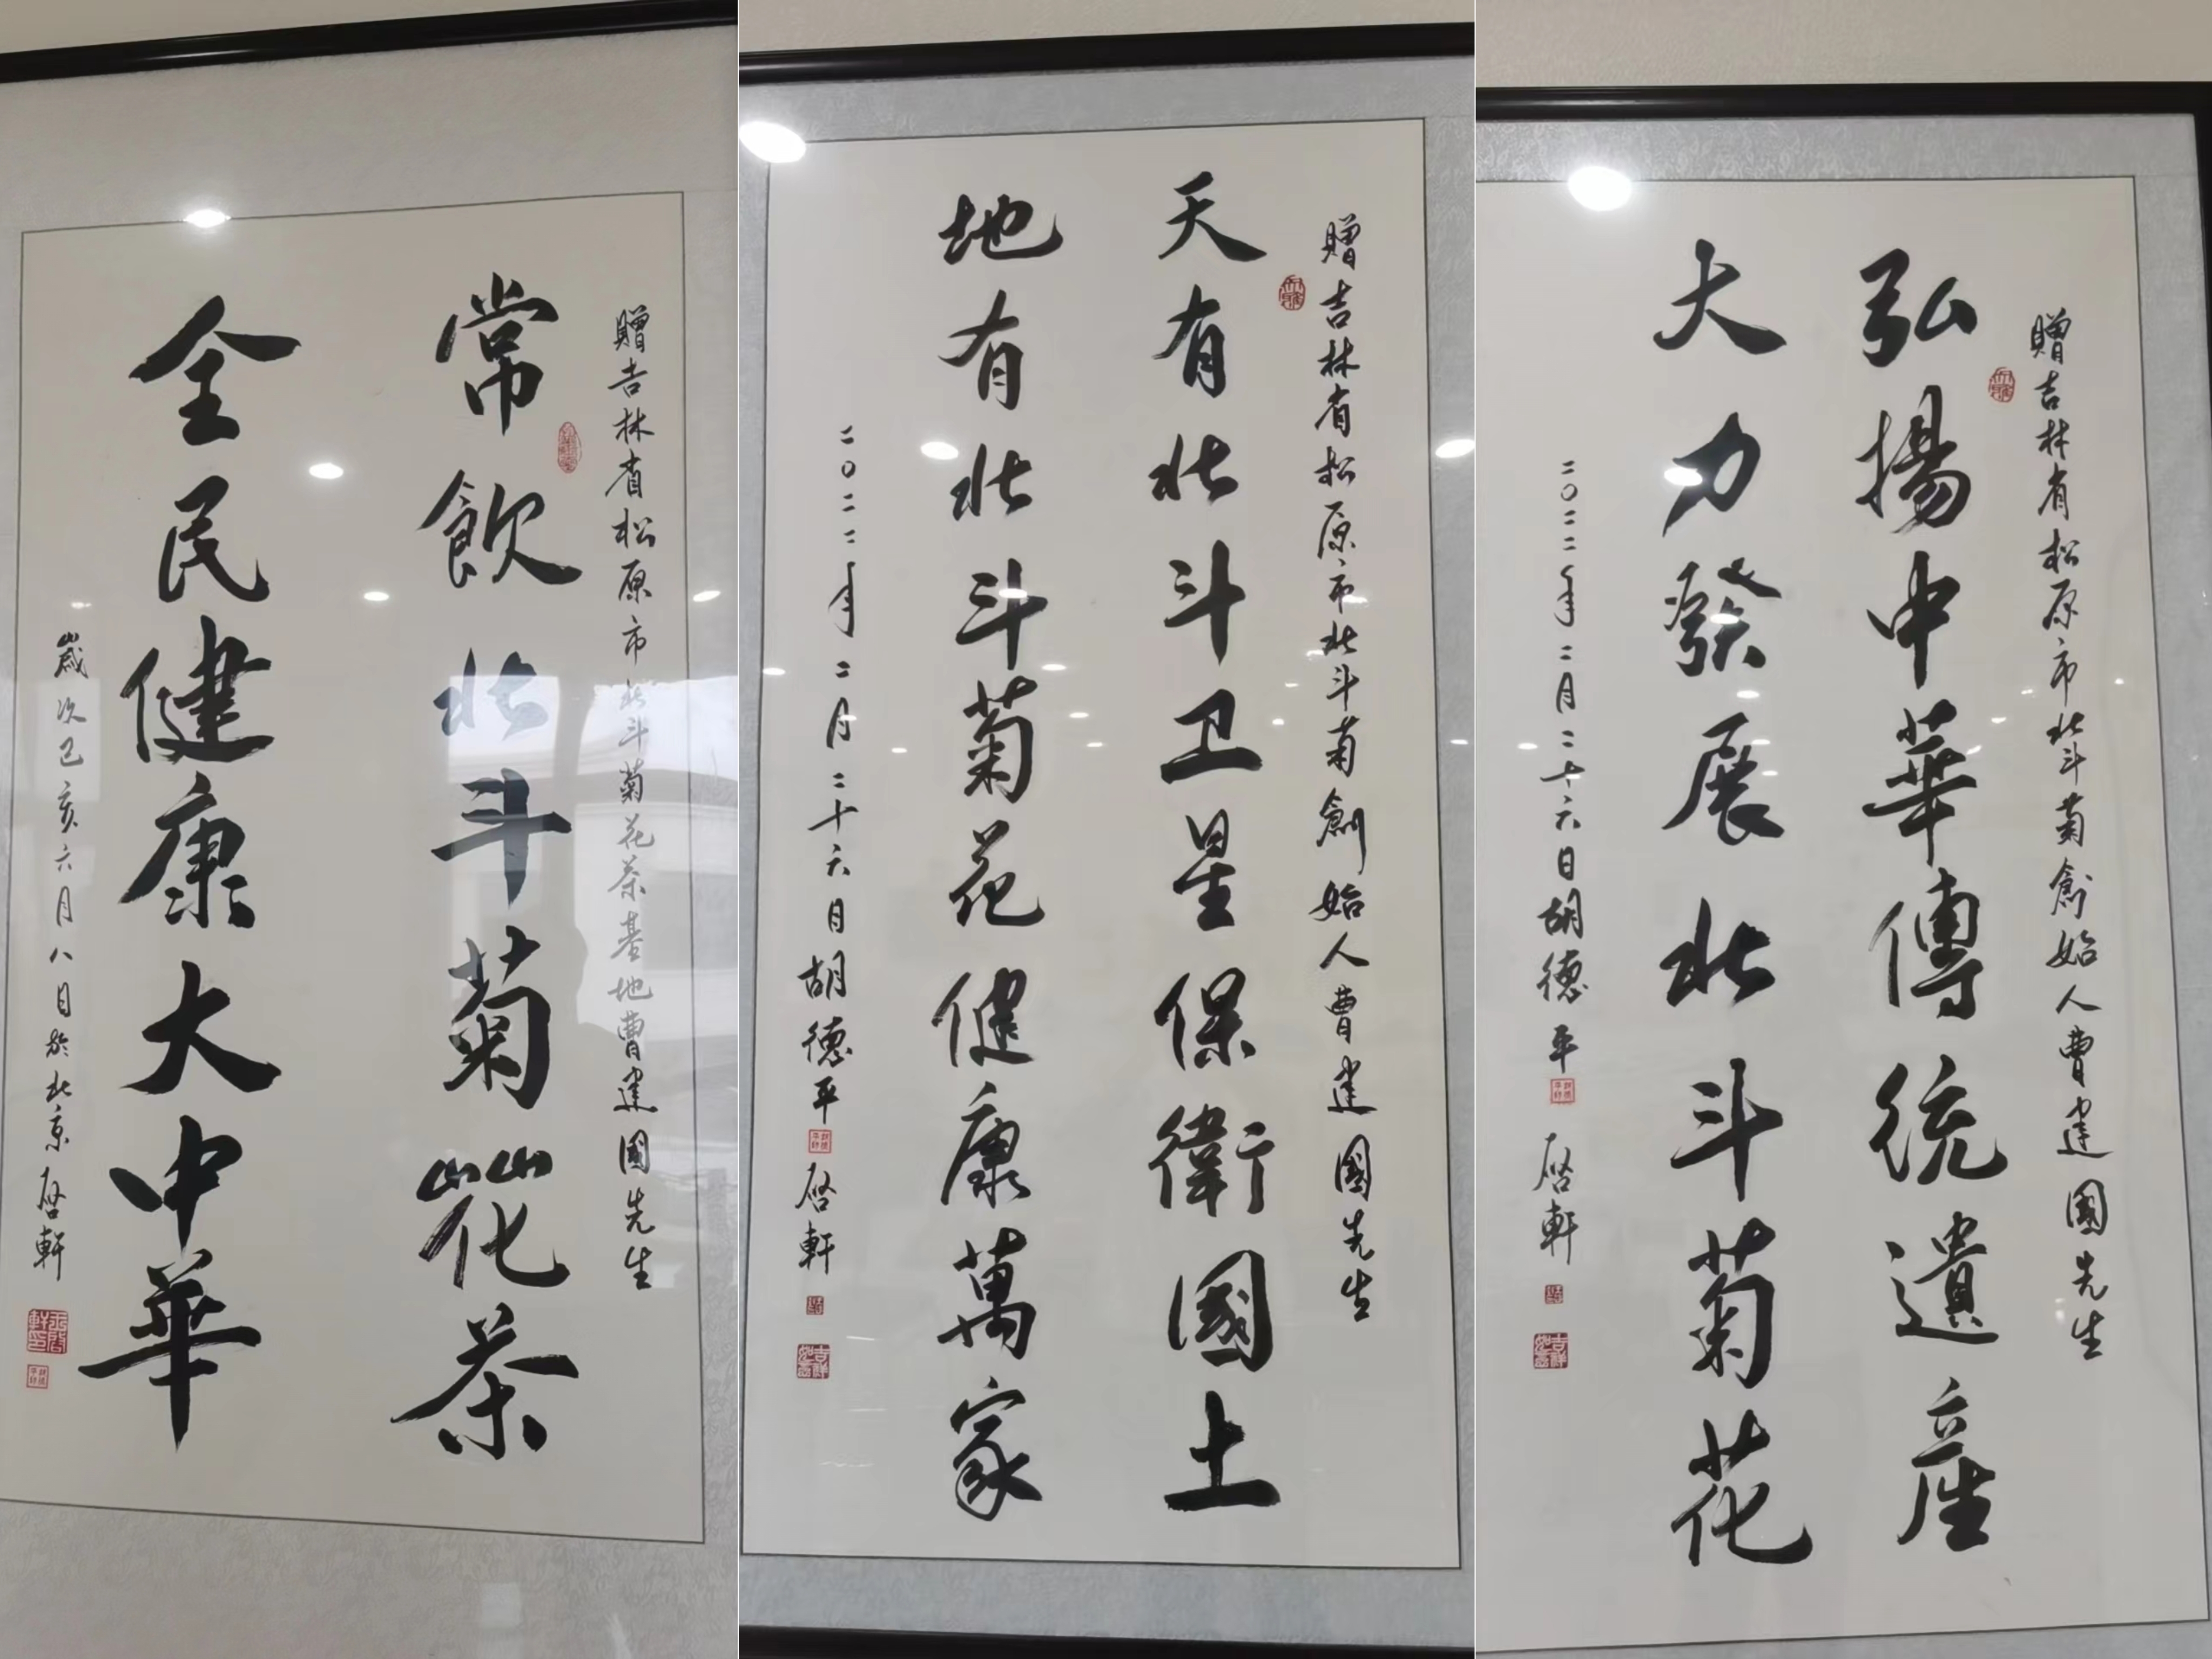 贈吉林省松原市北斗菊花茶基地曹建國先生
常飲北斗菊花茶
全民健康大中華
歲次己亥六月八日於北京啓軒
贈吉林省松原市北斗菊創始人曹建國先生
天有北斗卫星保衛國土
地有北斗菊花健康萬家
二〇二二年二月二十六日胡德平
啓軒
贈吉林省松原市北斗菊創始人曹建國先生
弘揚中華傳統遺産
大力發展北斗菊花
二〇二二年二月二十六日胡德平
啓軒